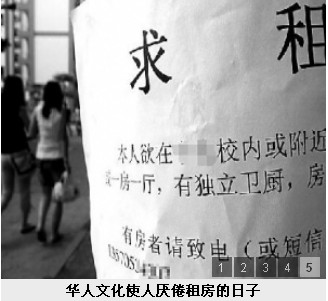 求 租
本人欲在 校内或附近
一房一厅，有独立卫厨，房
有房者请致电（或短信
1 2 3 4 5
华人文化使人厌倦租房的日子